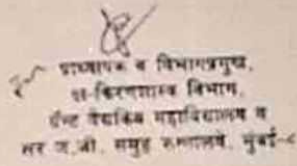 प्राध्यापक व विभागप्रमुख,
क्ष-किरणशास्त्र विभाग,
ग्रॅन्ट वैद्यकिय महाविद्यालय व
सर ज.जी. समुह रुग्णालये, मुंबई-८